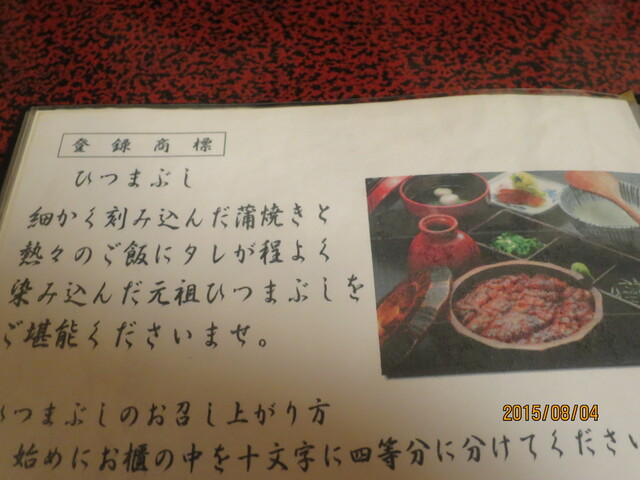 登録商標
ひつまぶし
細かく刻み込んだ蒲焼きと
熱々のご飯にタレが程よく
染み込んだ元祖ひつまぶしを
ご堪能くださいませ。
ひつまぶしのお召し上がり方
始めにお櫃の中を十文字に四等分に分けてください
2015/08/04